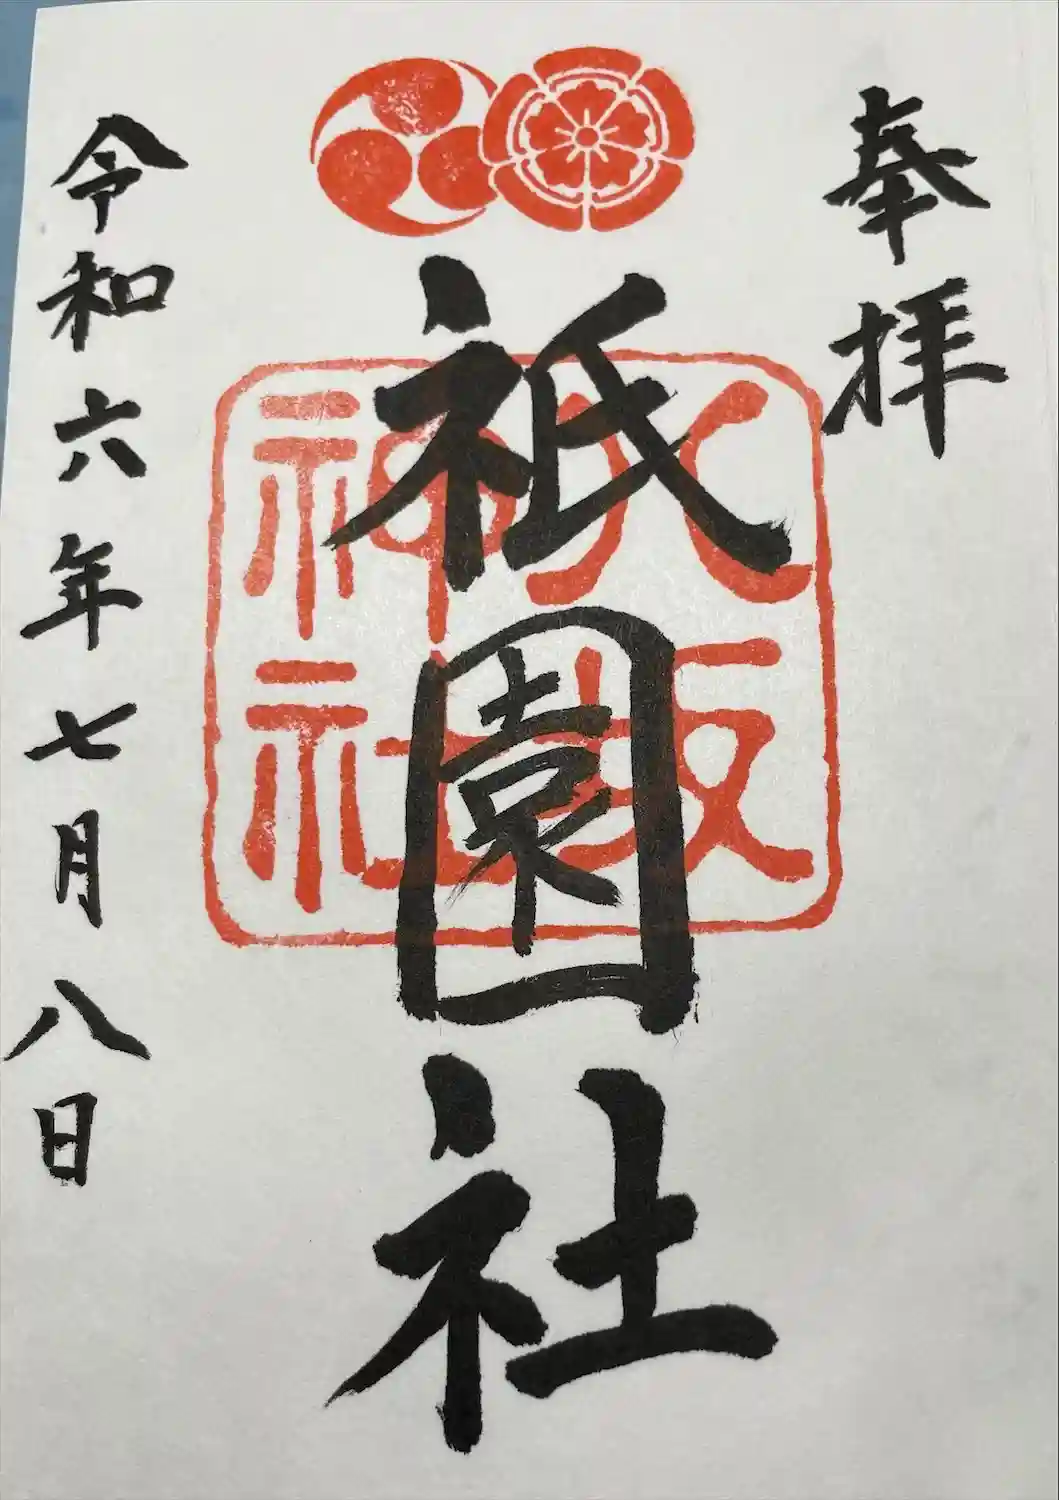 奉拝
八坂
神社
祇園社
令和六年七月八日